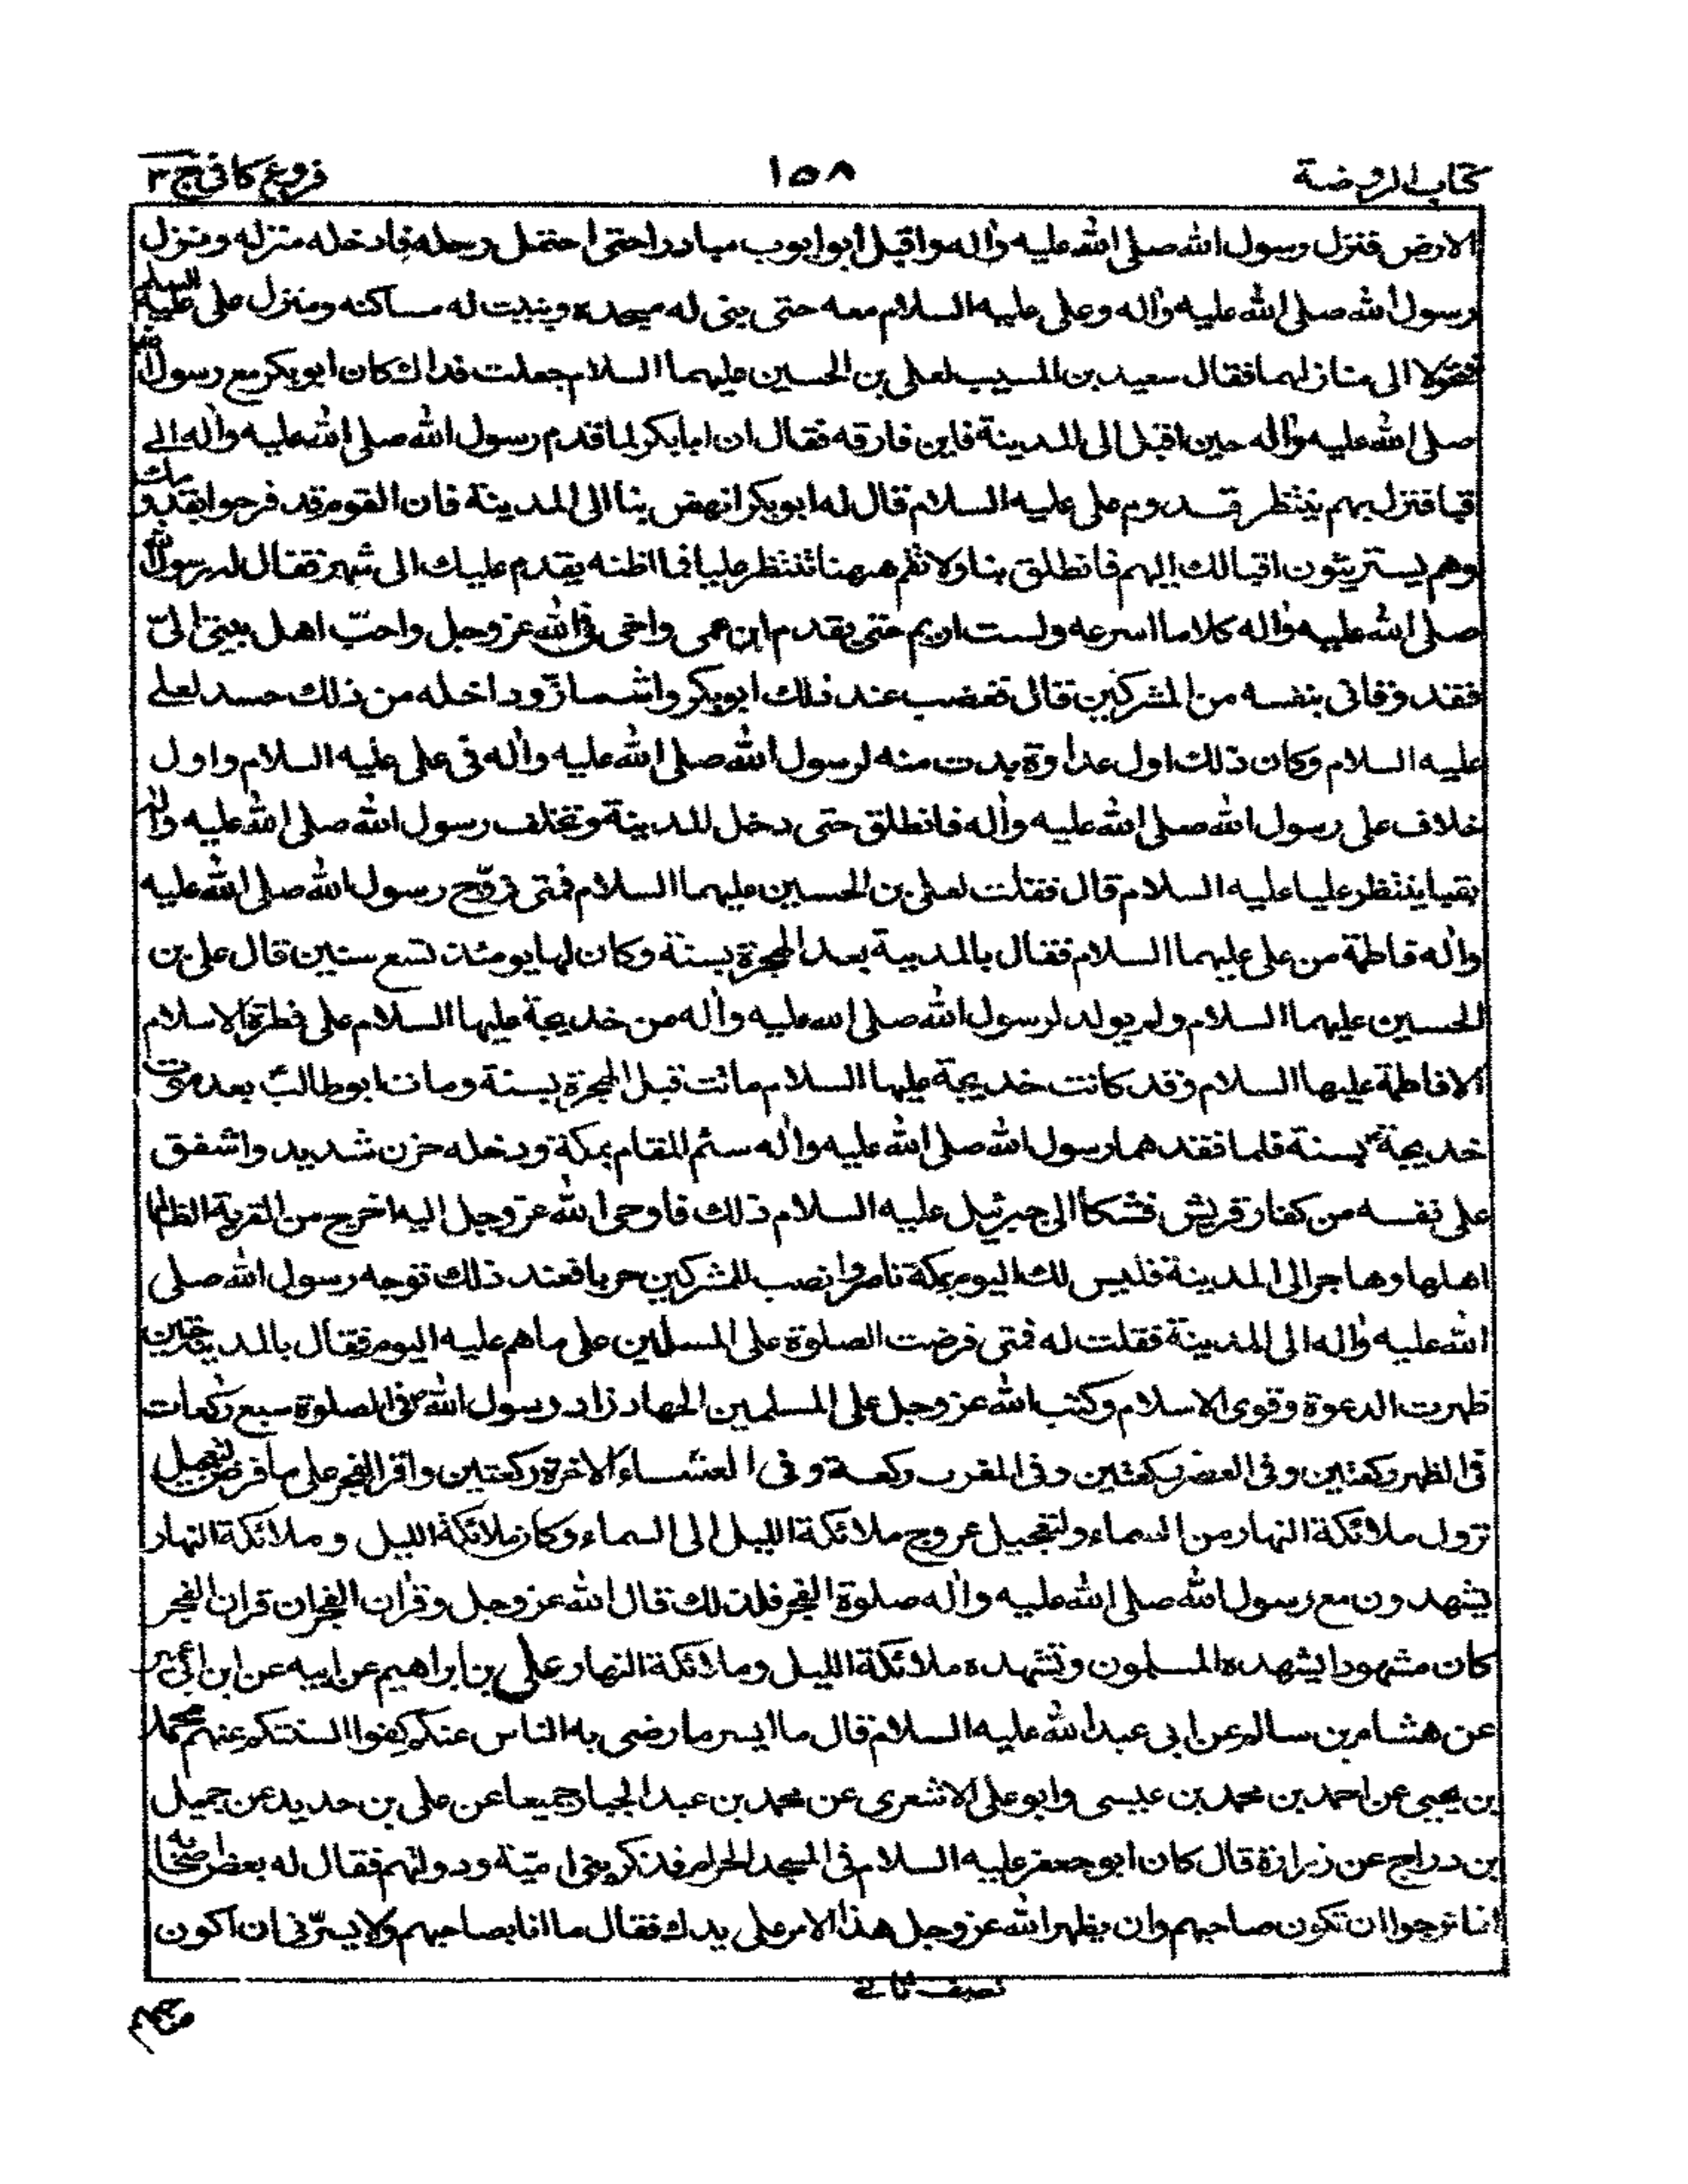 كتاب الروضة ١٥٨ فروع كافى ج ٣
الارض فنزل رسول الله صلى الله عليه واله واقبل ابو ايوب مبادرا حتى احتمل رحله فادخله منزله ونزل
رسول الله صلى الله عليه واله وعلى عليه السلام معه حتى بنى له مسجده وبنيت له مساكنه ومنزل على عليه السلم
فتحولا الى منازلهما فقال سعيد بن المسيب لعلى بن الحسين عليهما السلام جعلت فداك كان ابو بكر مع رسول الله
صلى الله عليه واله حين اقبل الى المدينة فاين فارقه فقال ان ابا بكر لما قدم رسول الله صلى الله عليه واله الى
قبا فنزل بهم ينتظر قدوم على عليه السلام قال له ابو بكر انهض بنا الى المدينة فان القوم قد فرحوا بقدومك
وهم يستريثون اقبالك اليهم فانطلق بنا ولا تقم ههنا تنتظر عليا فما اظنه يقدم عليك الى شهر فقال له رسول الله
صلى الله عليه واله كلا ما اسرعه ولست اريم حتى يقدم ابن عمى واخى فى الله عز وجل واحبّ اهل بيتى الىّ
فقد وقانى بنفسه من المشركين قال فغضب عند ذلك ابو بكر واشمازّ وداخله من ذلك حسد لعلى
عليه السلام وكان ذلك اول عداوة بدت منه لرسول الله صلى الله عليه واله فى على عليه السلام واول
خلاف على رسول الله صلى الله عليه واله فانطلق حتى دخل المدينة وتخلف رسول الله صلى الله عليه واله
بقبا ينتظر عليا عليه السلام قال فقلت لعلى بن الحسين عليهما السلام فمتى زوّج رسول الله صلى الله عليه
واله فاطمة من على عليهما السلام فقال بالمدينة بعد الهجرة بسنة وكان لها يومئذ تسع سنين قال على بن
الحسين عليهما السلام ولم يولد لرسول الله صلى الله عليه واله من خديجة عليها السلام على فطرة الاسلام
الا فاطمة عليها السلام وقد كانت خديجة عليها السلام ماتت قبل الهجرة بسنة ومات ابو طالب بعد موت
خديجة بسنة فلما فقدهما رسول الله صلى الله عليه واله سئم المقام بمكة ودخله حزن شديد واشفق
على نفسه من كفار قريش فشكا الى جبرئيل عليه السلام ذلك فاوحى الله عز وجل اليه اخرج من القرية الظالم
اهلها وهاجر الى المدينة فليس لك اليوم بمكة ناصر وانصب للمشركين حربا فعند ذلك توجه رسول الله صلى
الله عليه واله الى المدينة فقلت له فمتى فرضت الصلوة على المسلمين على ما هم عليه اليوم فقال بالمدينة حين
ظهرت الدعوة وقوى الاسلام وكتب الله عز وجل على المسلمين الجهاد زاد رسول الله فى الصلوة سبع ركعات
فى الظهر ركعتين وفى العصر ركعتين وفى المغرب ركعة وفى العشاء الاخرة ركعتين واقر الفجر على ما فرضت لتعجيل
نزول ملائكة النهار من السماء ولتعجيل عروج ملائكة الليل الى السماء وكان ملائكة الليل وملائكة النهار
يشهدون مع رسول الله صلى الله عليه واله صلوة الفجر فلذلك قال الله عز وجل وقرآن الفجر ان قرآن الفجر
كان مشهودا يشهده المسلمون وتشهده ملائكة الليل وملائكة النهار على بن ابراهيم عن ابيه عن ابن ابى عمير
عن هشام بن سالم عن ابى عبد الله عليه السلام قال ما ايسر ما رضى به الناس عنكم كفوا السنتكم عنهم محمد
بن يحيى عن احمد بن محمد بن عيسى وابو على الاشعرى عن محمد بن عبد الجبار جميعا عن على بن حديد عن جميل
بن دراج عن زرارة قال كان ابو جعفر عليه السلام فى المسجد الحرام فذكر بنى امية ودولتهم فقال له بعض اصحابه
انما نرجوا ان تكون صاحبهم وان يظهر الله عز وجل هذا الامر على يدك فقال ما انا بصاحبهم ولا يسرّنى ان اكون
نصف ثانى